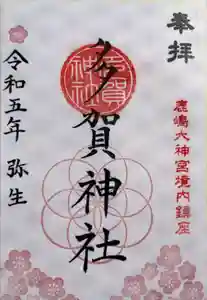 奉拝
鹿嶋大神宮境内鎮座
多賀神社
令和五年 弥生